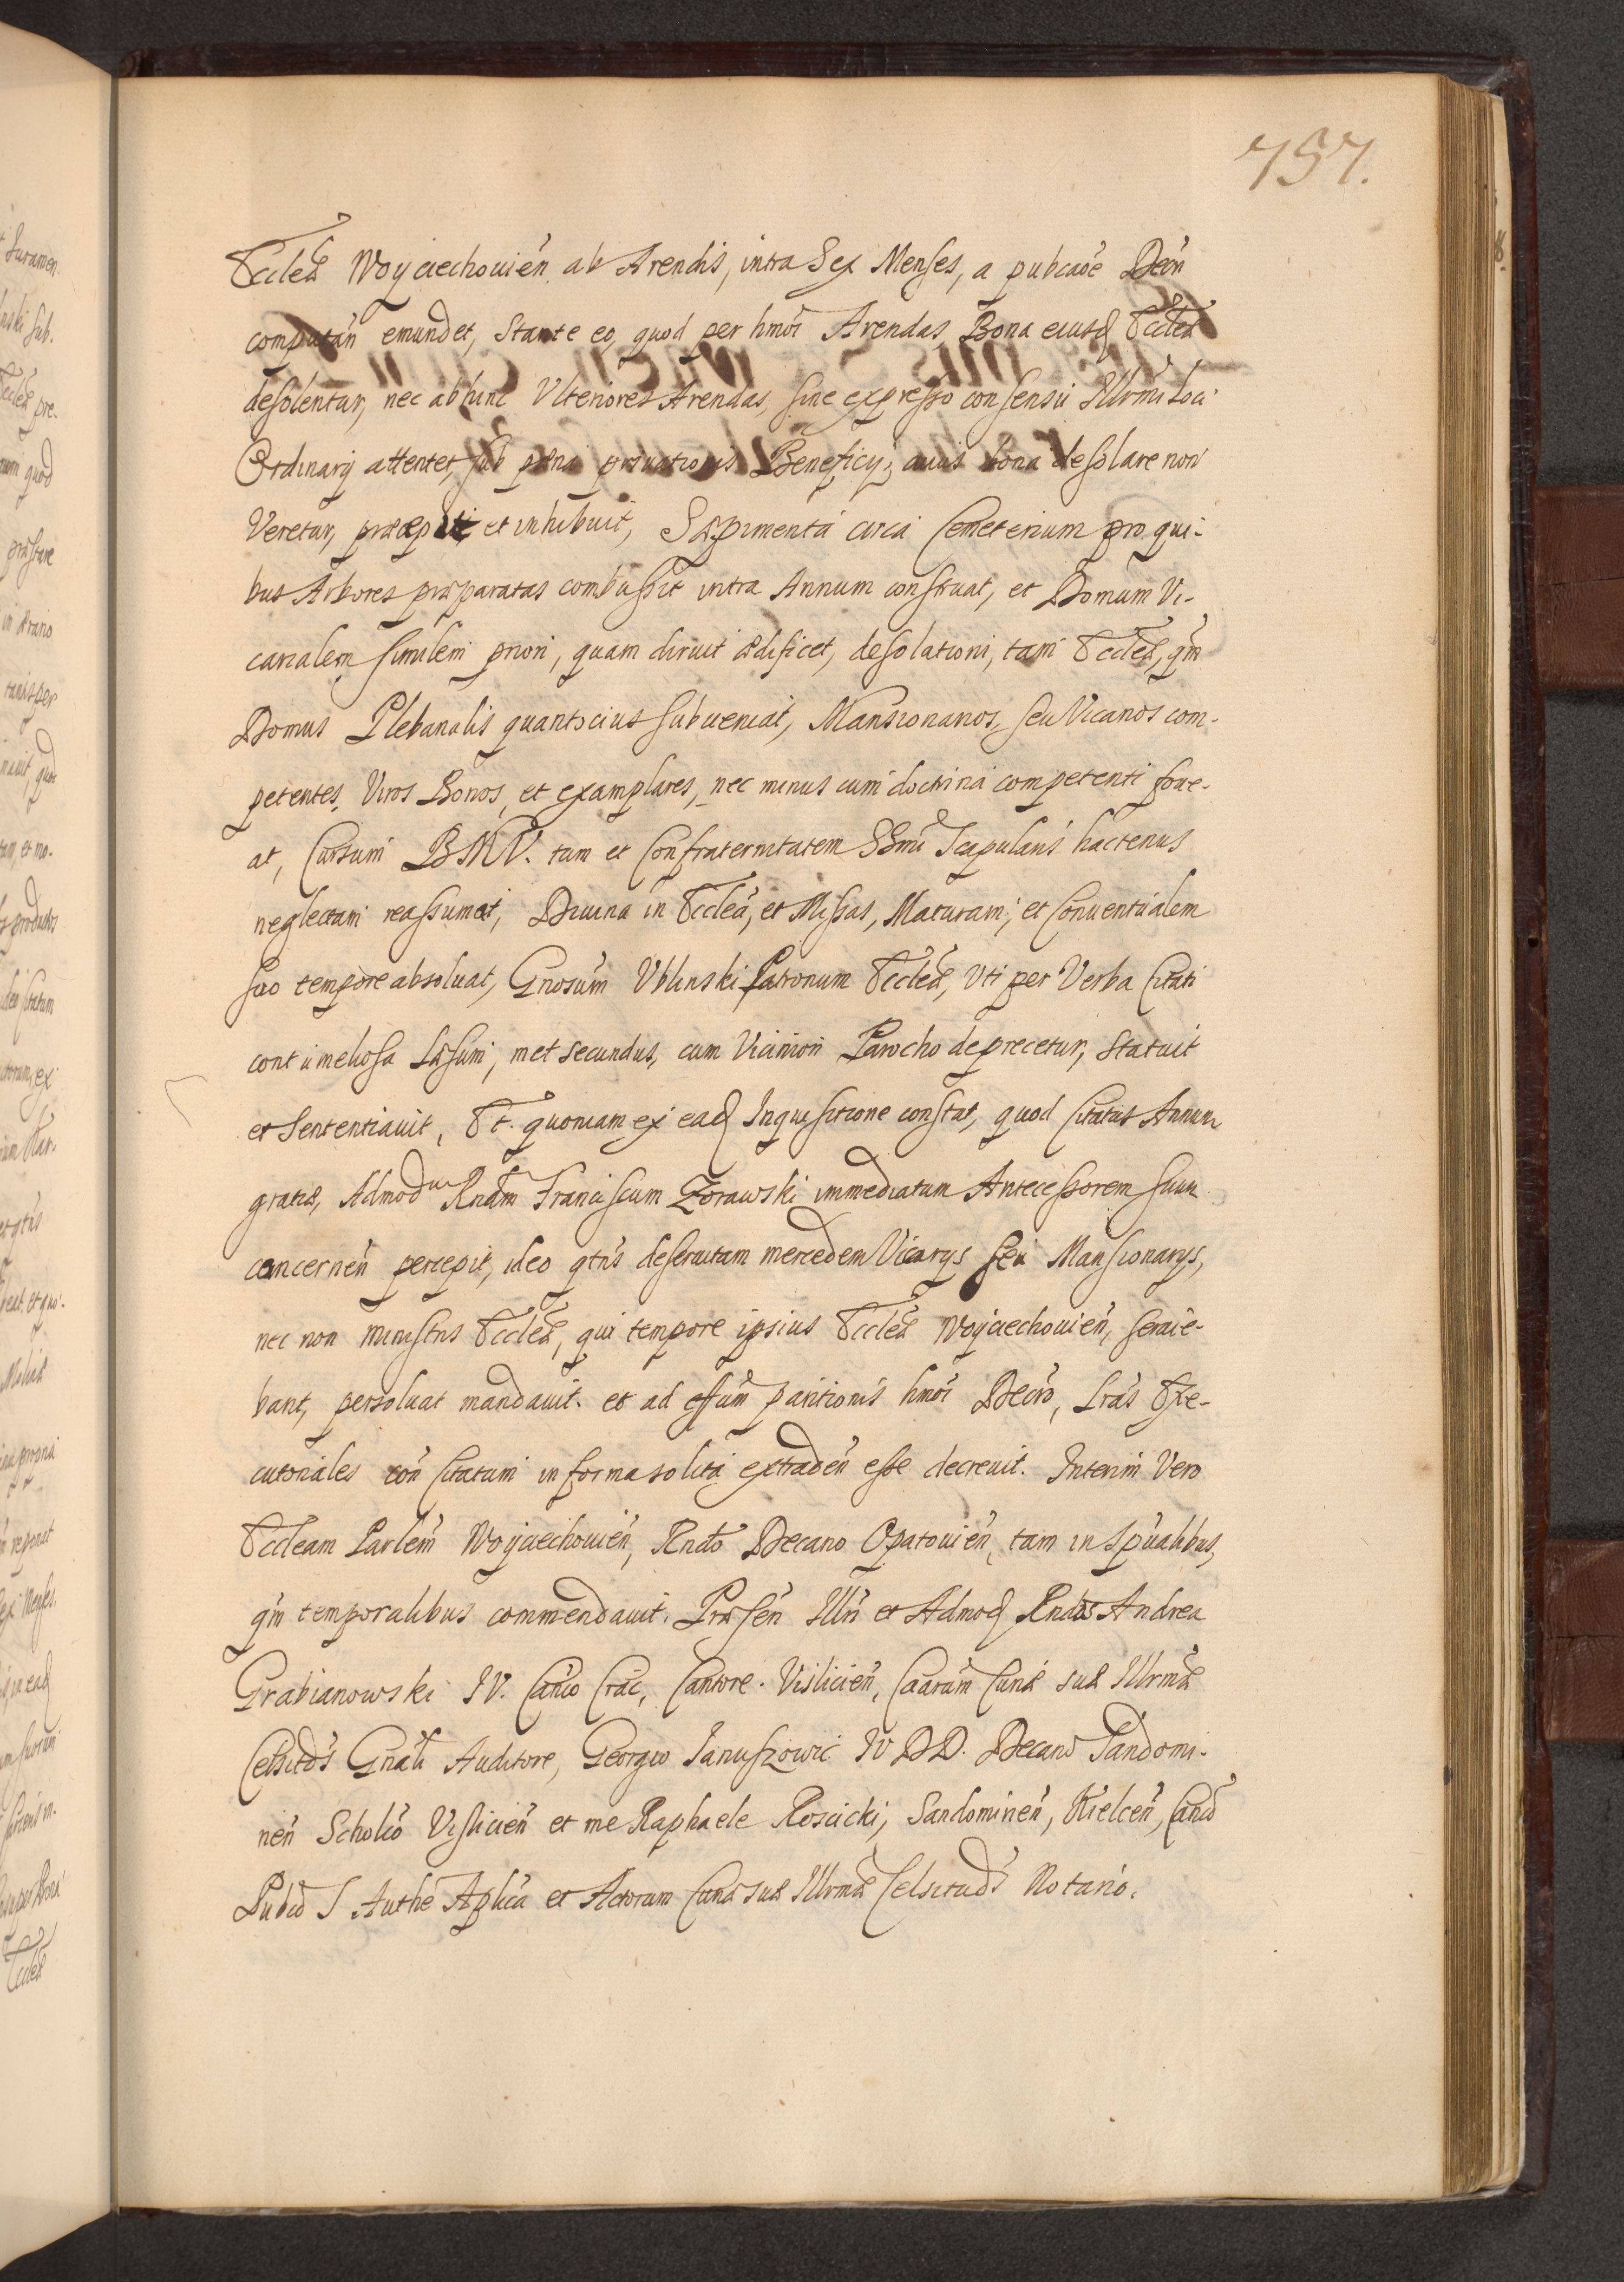 757.
Eccleæ Woyciechouień. ab Arendis, intra Sex Menses, a pubcaõe Decñ
computań emundet, Stante eo, quod per hmõi Arendas, Bona eiusd Eccleæ
desolentur, nec ab hinc Vlteriores Arendas, sine expresso consensu Illrmi Loci
Ordinarij attentet, sub pæna priuationis Beneficij, cuius bona desolare non
Veretur, præcepit, et inhibuit, Sæpimenta circa Cemeterium pro qui-
bus Arbores præparatas combussit intra Annum construat, et Domum Vi-
carialem similem priori, quam diruit ædificet, desolationi, tam Eccleæ, qm
Domus Plebanalis quantocius subueniat, Mansionarios, seu Vicarios com-
petentes, Viros Bonos, et exemplares, nec minus cum doctrina competenti foue-
at, Cursum BMV. tam et Confraternitatem SSmi Scapularis hactenus
neglectam reassumat, Diuina in Ecclea, et Missas, Maturam, et Conuentualem
suo tempore absoluat, Gnosum Vblinski Patronum Eccleæ, Vti per Verba Citati
contumeliosa Læsum, met secundus, cum Viciniori Parocho deprecetur, Statuit
et Sententiauit, Et. quoniam ex ead Inquisitione constat, quod Citatus Annum
gratiæ, Admodum Rndum Franciscum Zorawski immediatum Antecessorem suum
concerneń percepit, ideo qtus deseruitam mercedem Vicarijs seu Mansionarijs,
nec non ministris Eccleæ, qui tempore ipsius Eccleæ Woyciechouień, seruie-
bant, persoluat mandauit. et ad effum paritionis hmõi Decro, Lras Exe-
cutoriales con Citatum in forma solita extradeń esse decreuit. Interim Vero
Eccleam Parlem Woyciechouień, Rndo Decano Opatouień, tam in spualibus,
qm temporalibus commendauit. Præseń Illri et Admod Rndis Andrea
Grabianowski IV. Canco Crac, Cantore. Vislicień, Caarum Curiæ suæ Illrmæ
Celsitdis Gnali Auditore, Georgio Januszowic IV DD. Decano Sandomi-
rień Scholco Vislicień et me Raphaele Roscicki, Sandomirień, Kielceń, Canco
Pubco S Authe Aplica et Actorum Curiæ suæ Illrmæ Celsitudis Notario.